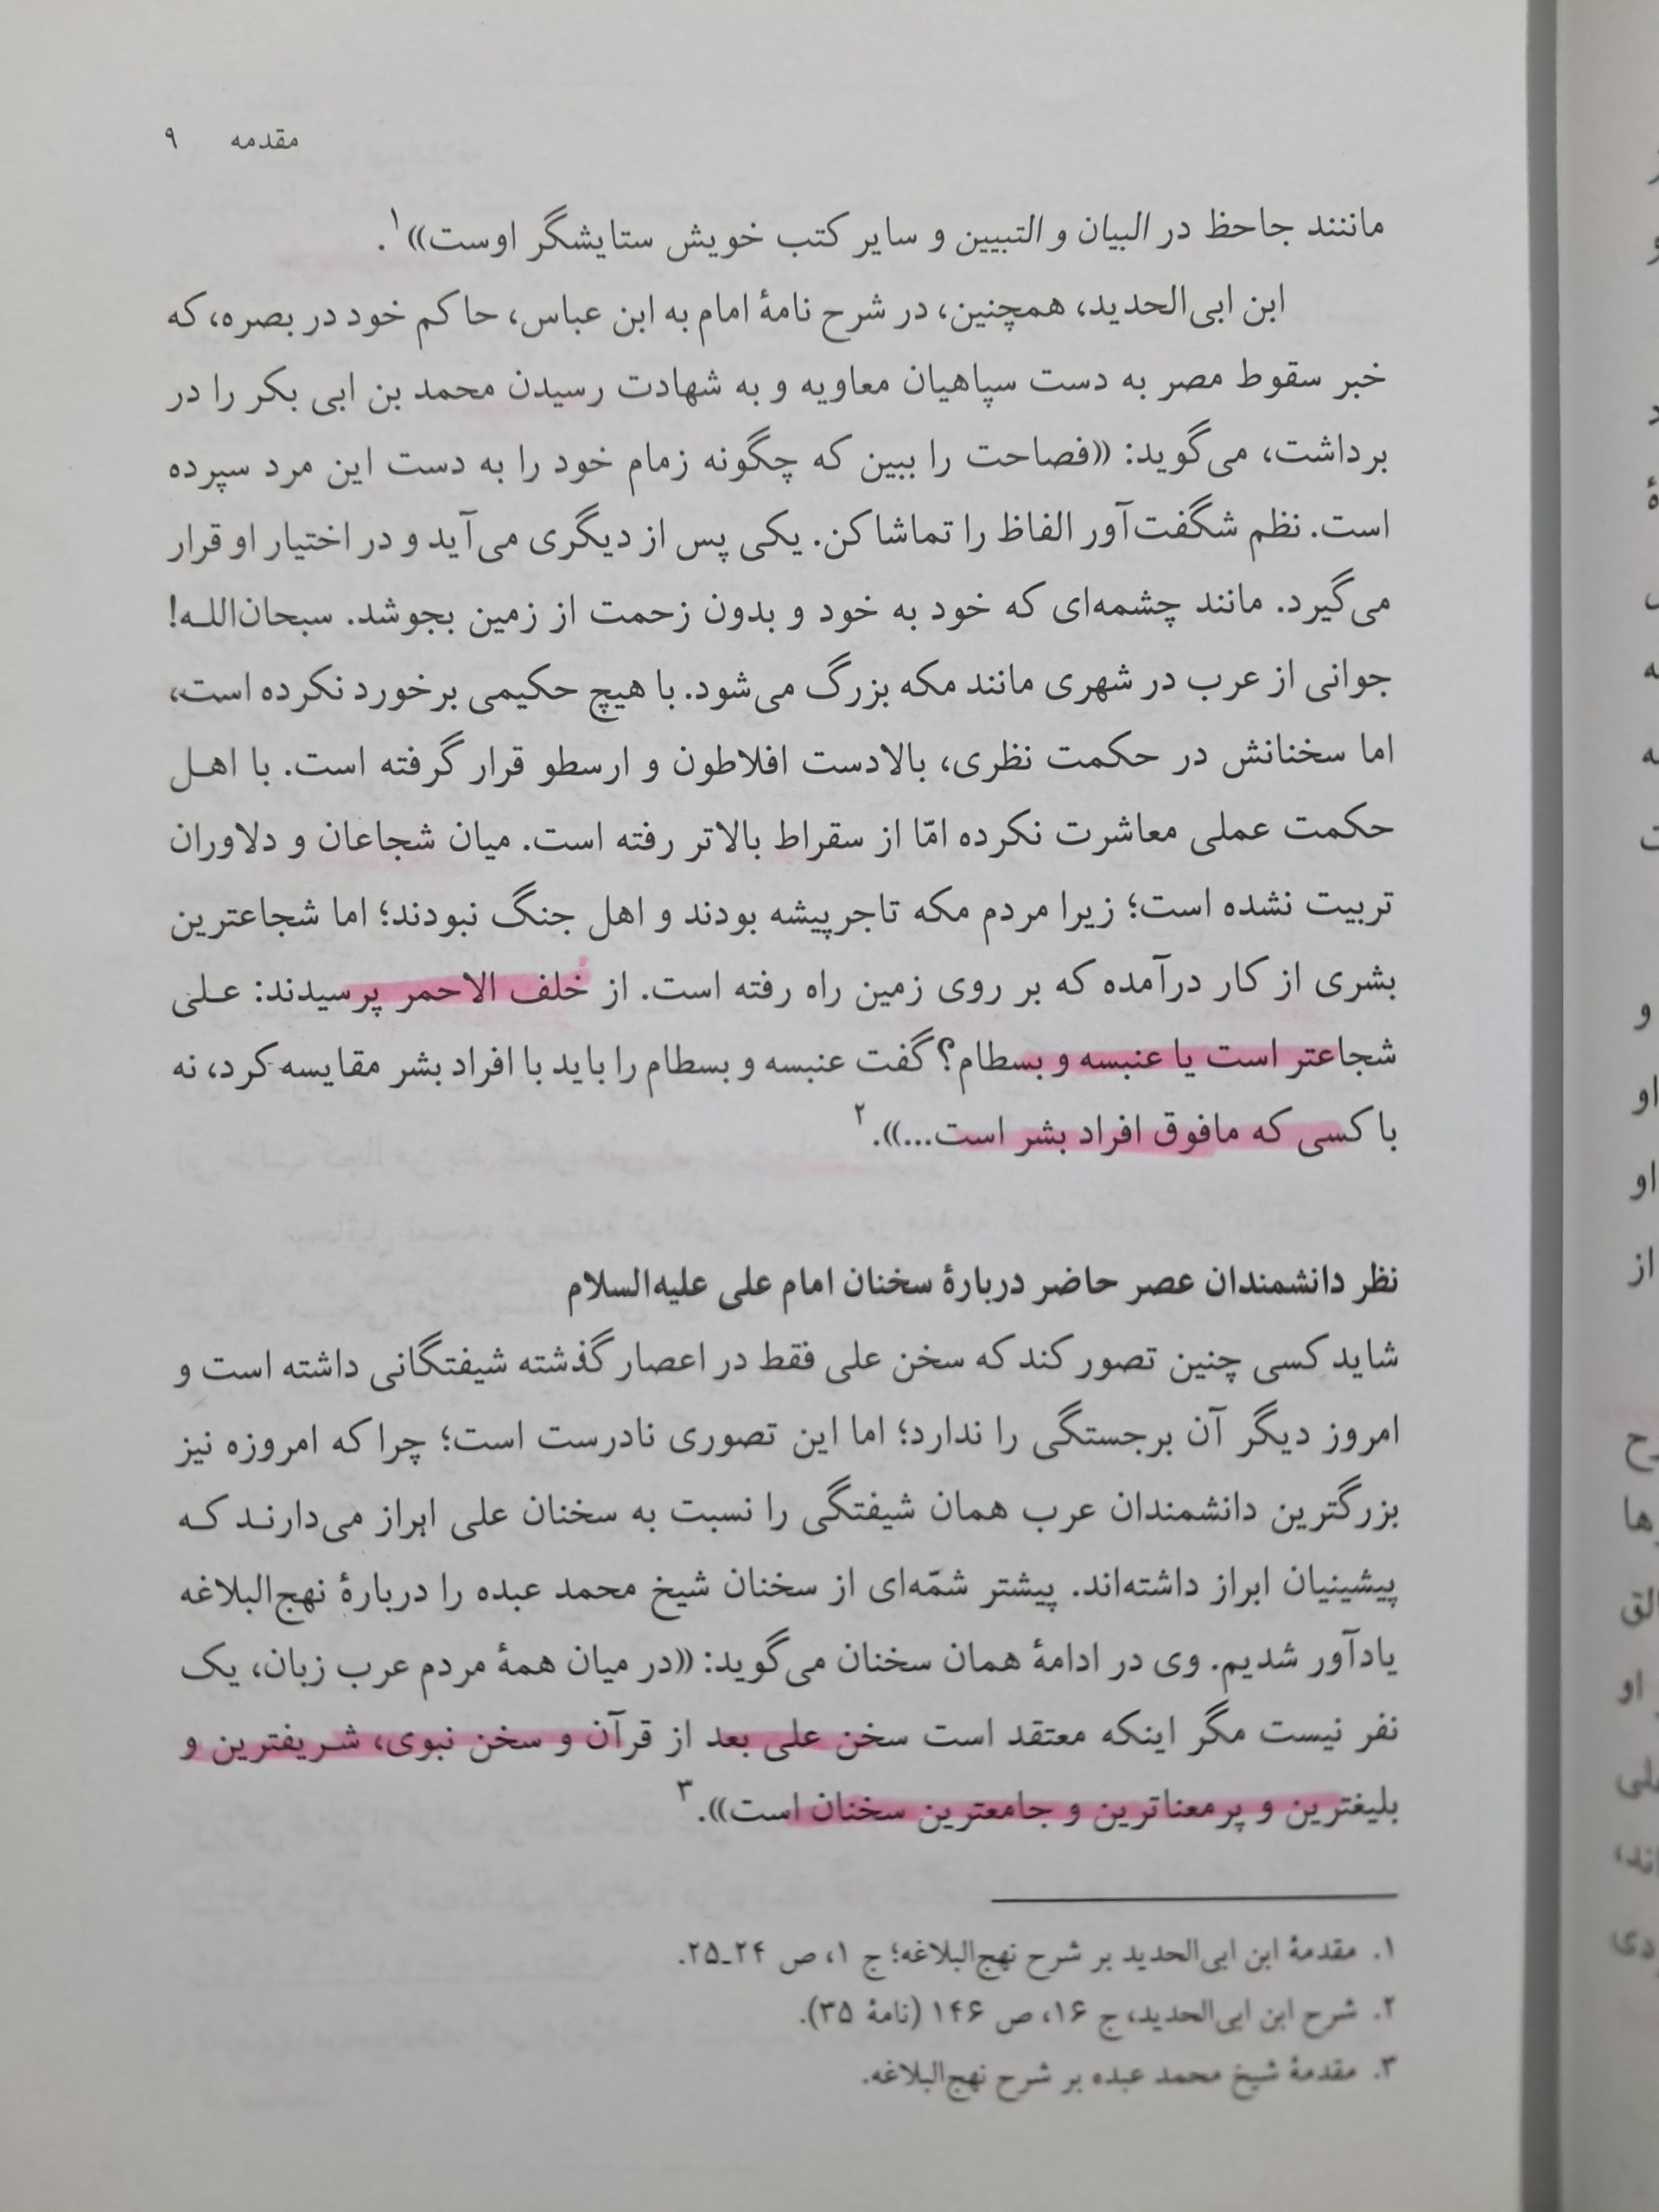 مقدمه ۹
ماننند جاحظ در البیان و التبیین و سایر کتب خویش ستایشگر اوست»۱.
ابن ابی‌الحدید، همچنین، در شرح نامهٔ امام به ابن عباس، حاکم خود در بصره، که
خبر سقوط مصر به دست سپاهیان معاویه و به شهادت رسیدن محمد بن ابی بکر را در
برداشت، می‌گوید: «فصاحت را ببین که چگونه زمام خود را به دست این مرد سپرده
است. نظم شگفت‌آور الفاظ را تماشا کن. یکی پس از دیگری می‌آید و در اختیار او قرار
می‌گیرد. مانند چشمه‌ای که خود به خود و بدون زحمت از زمین بجوشد. سبحان‌اللـه!
جوانی از عرب در شهری مانند مکه بزرگ می‌شود. با هیچ حکیمی برخورد نکرده است،
اما سخنانش در حکمت نظری، بالادست افلاطون و ارسطو قرار گرفته است. با اهـل
حکمت عملی معاشرت نکرده امّا از سقراط بالاتر رفته است. میان شجاعان و دلاوران
تربیت نشده است؛ زیرا مردم مکه تاجرپیشه بودند و اهل جنگ نبودند؛ اما شجاعترین
بشری از کار درآمده که بر روی زمین راه رفته است. از خلف الاحمر پرسیدند: عـلی
شجاعتر است یا عنبسه و بسطام؟ گفت عنبسه و بسطام را باید با افراد بشر مقایسه کرد، نه
با کسی که مافوق افراد بشر است...».۲
نظر دانشمندان عصر حاضر دربارهٔ سخنان امام علی علیه‌السلام
شاید کسی چنین تصور کند که سخن علی فقط در اعصار گذشته شیفتگانی داشته است و
امروز دیگر آن برجستگی را ندارد؛ اما این تصوری نادرست است؛ چرا که امروزه نیز
بزرگترین دانشمندان عرب همان شیفتگی را نسبت به سخنان علی ابراز می‌دارنـد کـه
پیشینیان ابراز داشته‌اند. پیشتر شمّه‌ای از سخنان شیخ محمد عبده را دربارهٔ نهج‌البلاغه
یادآور شدیم. وی در ادامهٔ همان سخنان می‌گوید: «در میان همهٔ مردم عرب زبان، یک
نفر نیست مگر اینکه معتقد است سخن علی بعد از قرآن و سخن نبوی، شـریفترین و
بلیغترین و پرمعناترین و جامعترین سخنان است».۳
۱. مقدمهٔ ابن ابی‌الحدید بر شرح نهج‌البلاغه؛ ج ۱، ص ۲۴ـ۲۵.
۲. شرح ابن ابی‌الحدید، ج ۱۶، ص ۱۴۶ (نامهٔ ۳۵).
۳. مقدمهٔ شیخ محمد عبده بر شرح نهج‌البلاغه.